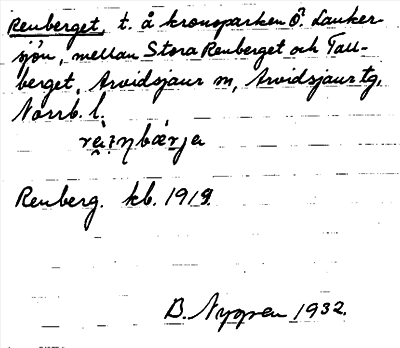 Renberget, t. å kronoparken Ö. Lauker-
sjön, mellan Stora Renberget och Tall-
berget, Arvidsjaur sn, Arvidsjaur tg,
Norrb. l.
Renberg. kb. 1919.
B. Nygren 1932.